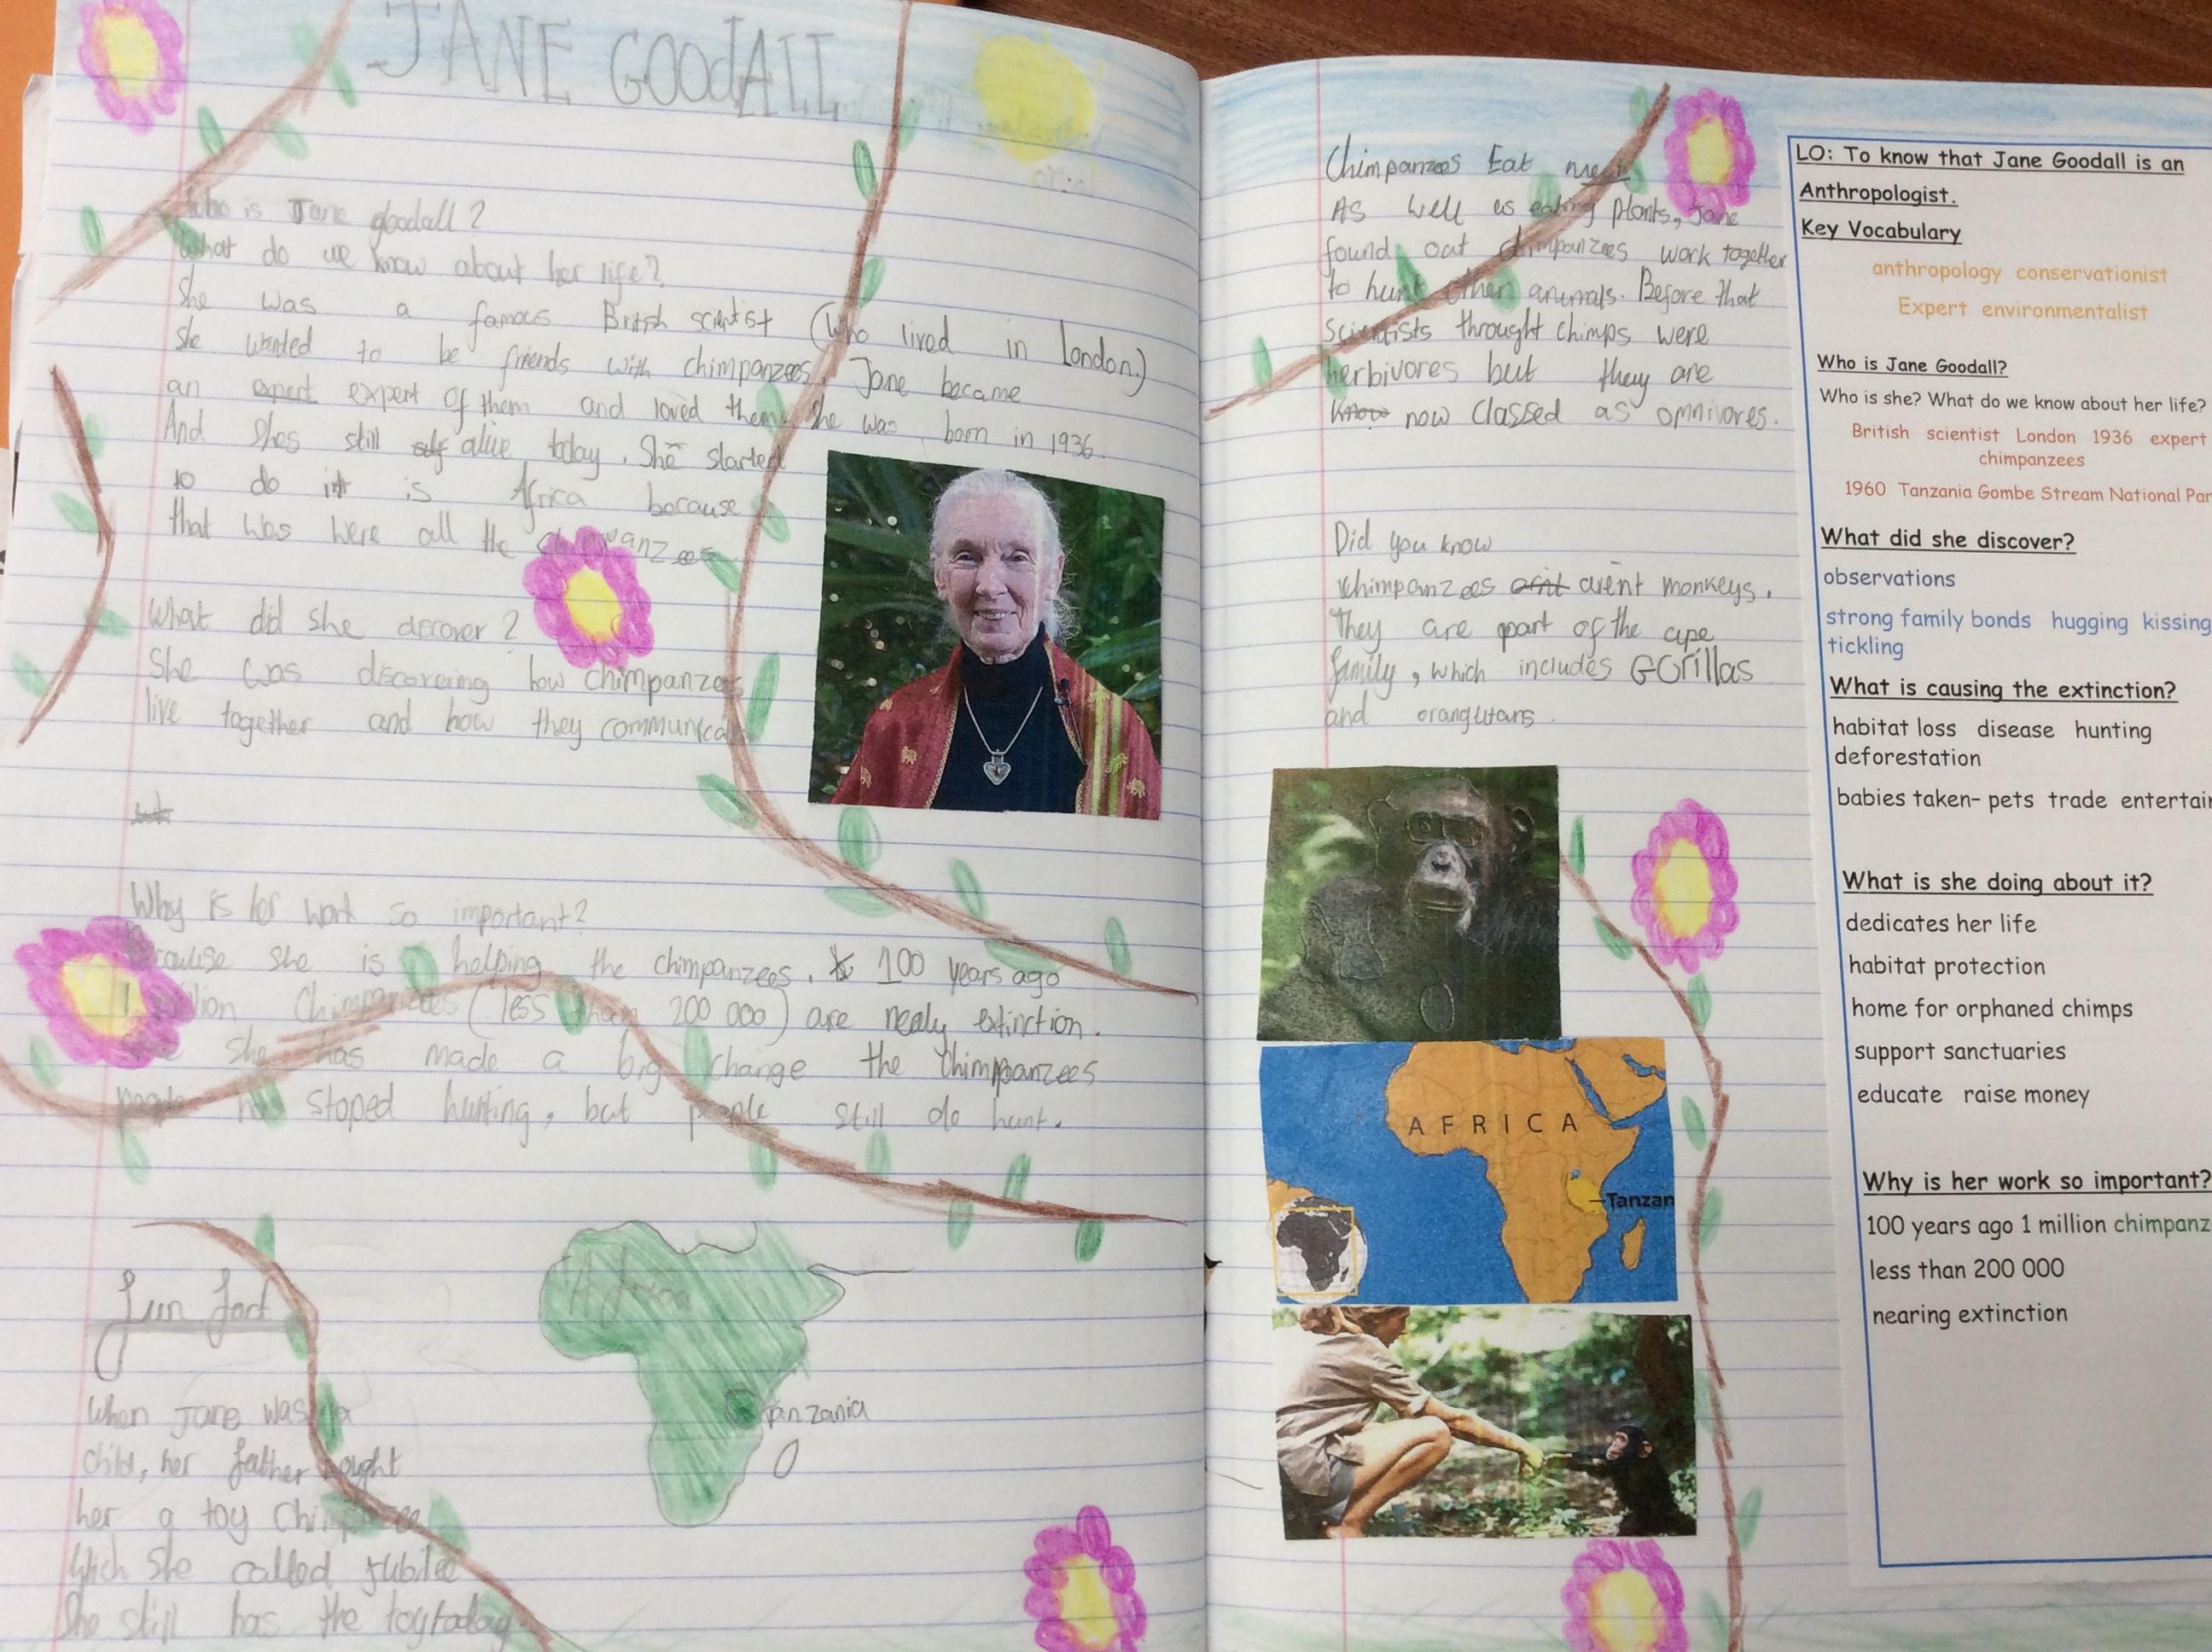 JANE GOODALL
Who is Jane goodall?
What do we know about her life?
She was a famous British scientist (who lived in London.)
She wanted to be friends with chimpanzees. Jane became
an expert expert of them and loved them she was born in 1936.
And shes still alive today. She started
to do it is Africa because
that was were all the chimpanzees
What did she dicover?
She was discovering how chimpanzees
live together and how they communicate
but
Why is her work so important?
Because she is helping the chimpanzees. 100 years ago
1 million Chimpanzees (less than 200 000) are nealy extinction.
she has made a big change the chimpanzees
people has stoped hunting, but people still do hunt.
Fun fact
When Jane was a
child, her father bought
her a toy Chimpanzee
which she called Jubilee
She still has the toy today
Africa
Tanzania
Chimpanzees Eat meat
As well as eating plants, Jane
found out chimpanzees work together
to hunt other animals. Before that
scientists throught chimps were
herbivores but they are
know now classed as omnivores.
Did you know
chimpanzees arnt arent monkeys.
They are part of the ape
family, which includes Gorillas
and orangutans.
AFRICA
Tanzan
LO: To know that Jane Goodall is an
Anthropologist.
Key Vocabulary
anthropology conservationist
Expert environmentalist
Who is Jane Goodall?
Who is she? What do we know about her life?
British scientist London 1936 expert
chimpanzees
1960 Tanzania Gombe Stream National Par
What did she discover?
observations
strong family bonds hugging kissing
tickling
What is causing the extinction?
habitat loss disease hunting
deforestation
babies taken- pets trade entertain
What is she doing about it?
dedicates her life
habitat protection
home for orphaned chimps
support sanctuaries
educate raise money
Why is her work so important?
100 years ago 1 million chimpanz
less than 200 000
nearing extinction